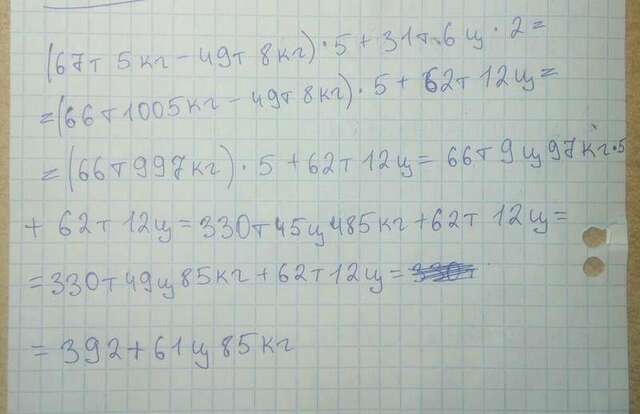 (67т 5кг - 49т 8кг) · 5 + 31т 6ц · 2 =
= (66т 1005кг - 49т 8кг) · 5 + 62т 12ц =
= (66т 997кг) · 5 + 62т 12ц = 66т 9ц 97кг · 5
+ 62т 12ц = 330т 45ц 485кг + 62т 12ц =
= 330т 49ц 85кг + 62т 12ц =
= 392т 61ц 85кг